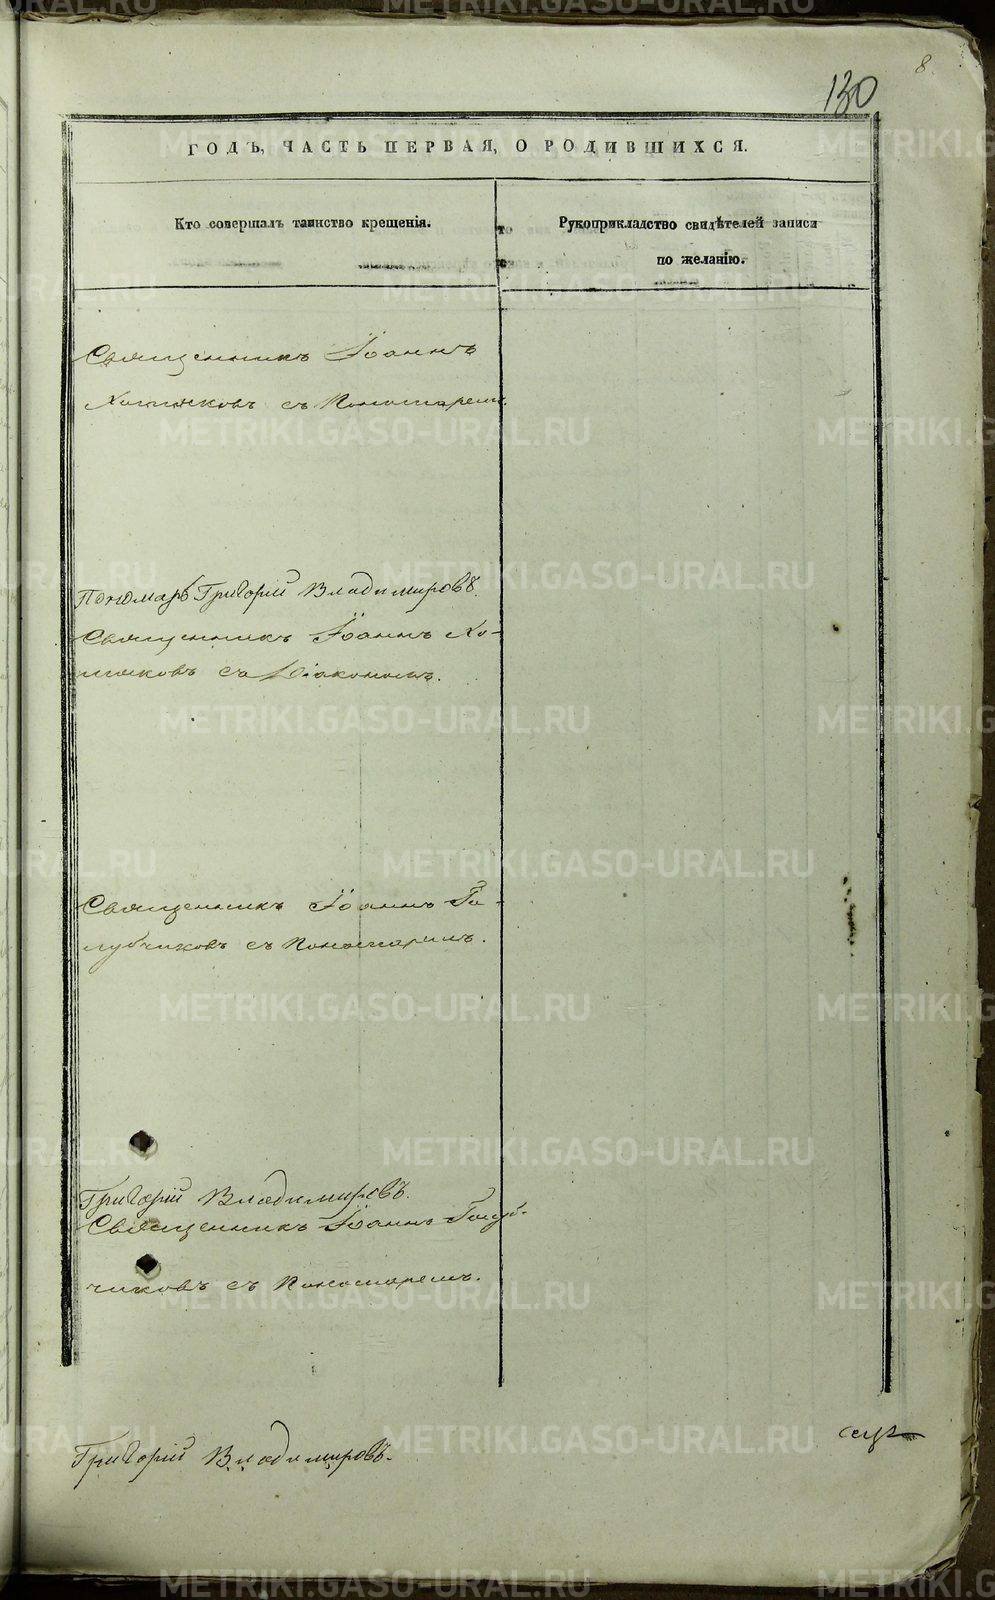 8
130
ГОДЪ, ЧАСТЬ ПЕРВАЯ, О РОДИВШИХСЯ.
Кто совершалъ таинство крещенія.
Рукоприкладство свидѣтелей записи
по желанію.
Священникъ Іоаннъ
Хомяковъ съ Пономаремъ.
Пономарь Григорій Владимировъ.
Священникъ Іоаннъ Хо-
мяковъ съ Діакономъ.
Священникъ Іоаннъ Го-
лубчиковъ съ Пономаремъ.
Григорій Владимировъ.
Священникъ Іоаннъ Голуб-
чиковъ съ Пономаремъ.
Григорій Владимировъ.
METRIKI.GASO-URAL.RU